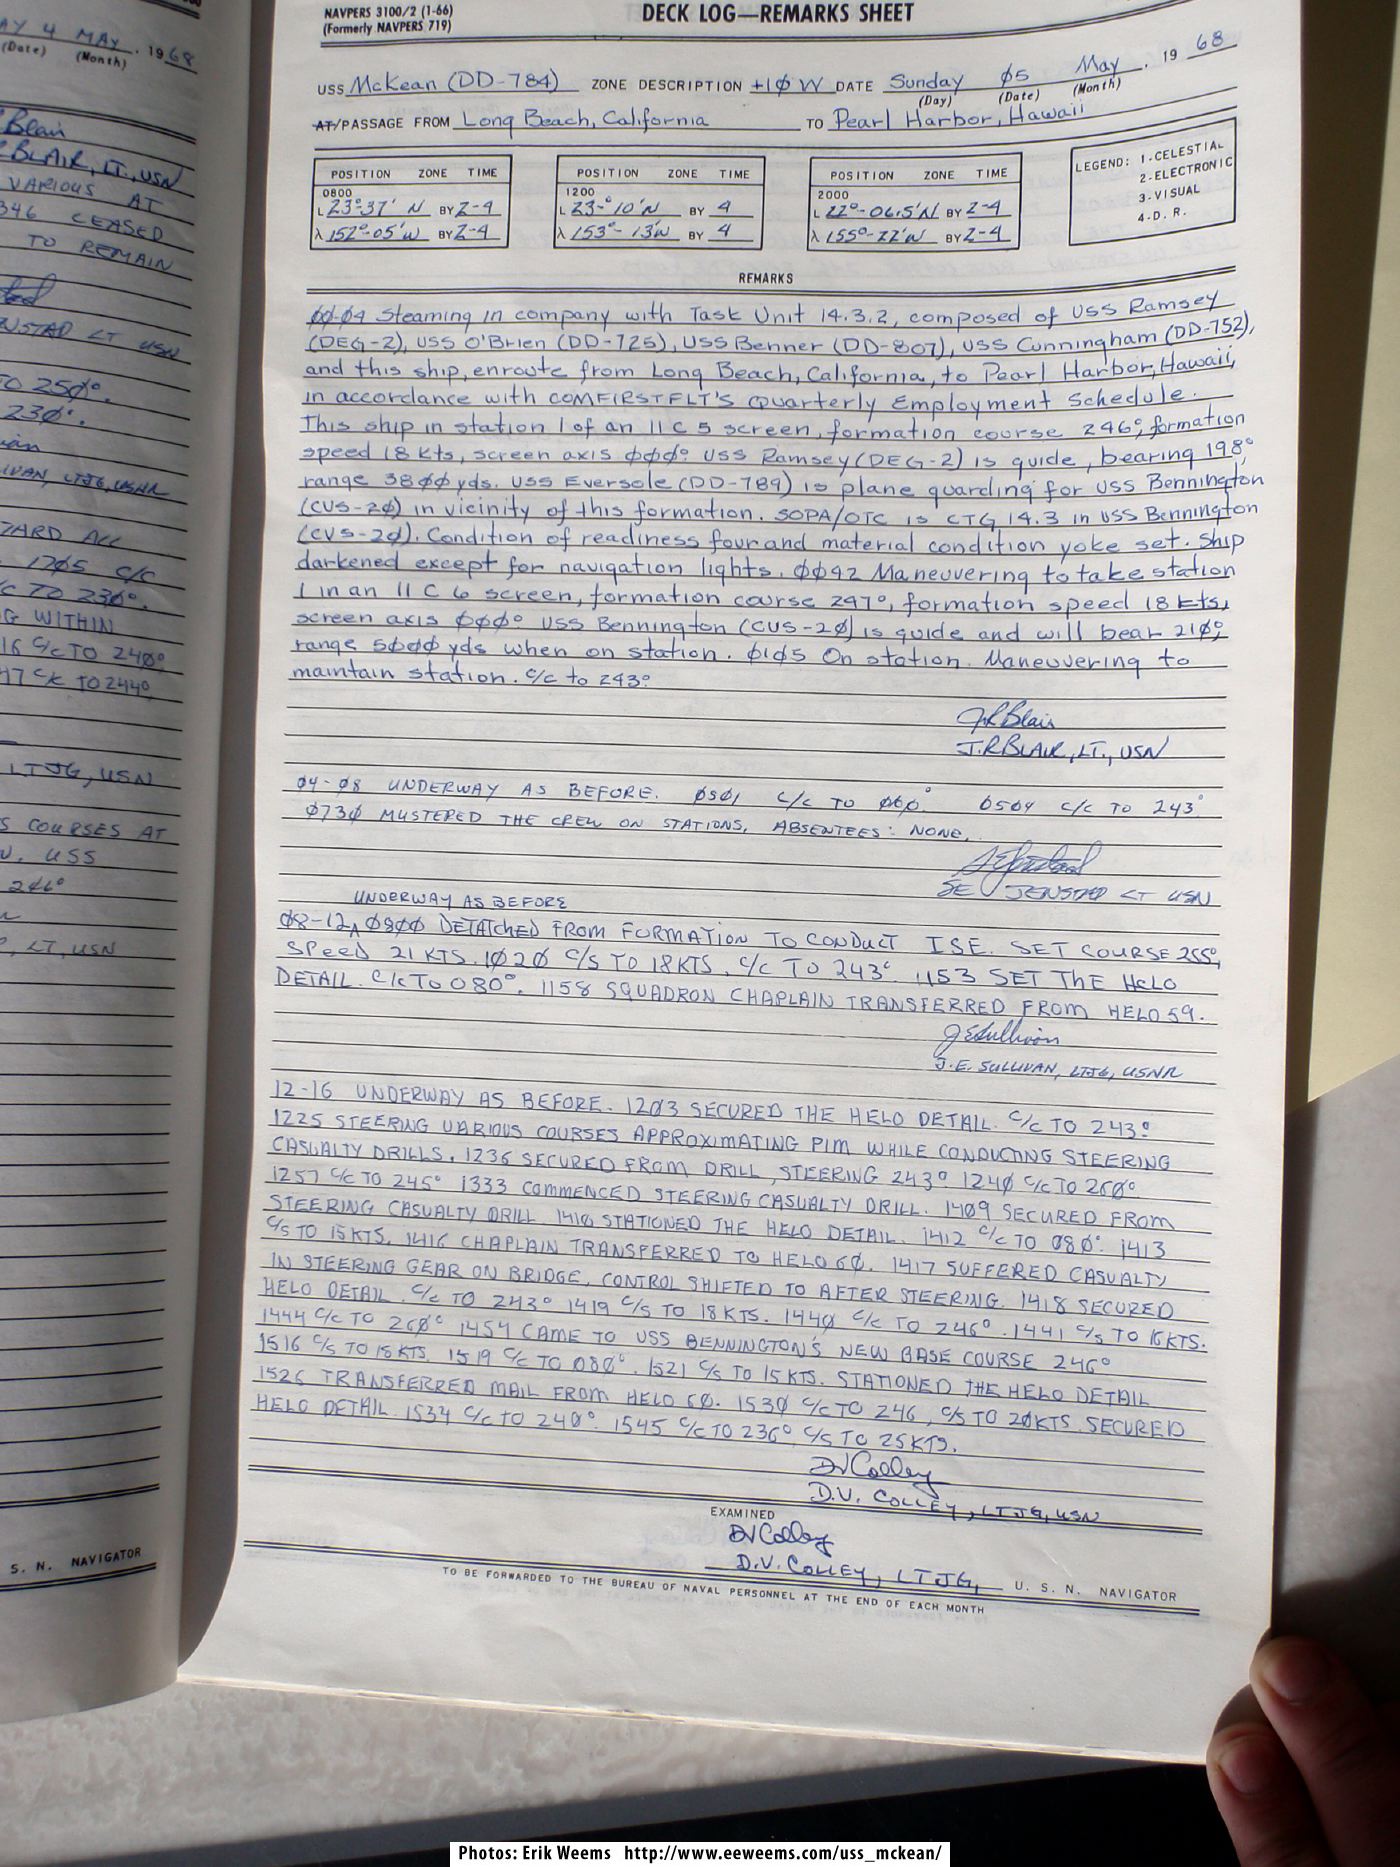 AY 4 MAY . 1968
(Date) (Month)
Blair
BLAIR, LT., USN
VARIOUS AT
346 CEASED
TO REMAIN
LT USN
TO 250°.
230°.
LTJG, USNR
ZARD ALL
1705 C/C
C TO 230°.
G WITHIN
16 C/C TO 240°
17 C/C TO 244°
LTJG, USN
S COURSES AT
N. USS
246°
, LT, USN
S. N. NAVIGATOR
NAVPERS 3100/2 (1-66)
(Formerly NAVPERS 719)
DECK LOG—REMARKS SHEET
USS McKean (DD-784) ZONE DESCRIPTION +10 W DATE Sunday 05 May . 19 68
(Day) (Date) (Month)
AT/PASSAGE FROM Long Beach, California TO Pearl Harbor, Hawaii
POSITION ZONE TIME
0800
L 23°-37' N BY 2-4
λ 152°-05'W BY 2-4
POSITION ZONE TIME
1200
L 23-°10'N BY 4
λ 153°-13'W BY 4
POSITION ZONE TIME
2000
L 22°-06.5'N BY 2-4
λ 155°-22'W BY 2-4
LEGEND: 1-CELESTIAL
2-ELECTRONIC
3-VISUAL
4-D. R.
REMARKS
00-04 Steaming in company with Task Unit 14.3.2, composed of USS Ramsey
(DEG-2), USS O'Brien (DD-725), USS Benner (DD-807), USS Cunningham (DD-752),
and this ship, enroute from Long Beach, California, to Pearl Harbor, Hawaii,
in accordance with COMFIRSTFLT'S Quarterly Employment Schedule.
This ship in station 1 of an 11 C 5 screen, formation course 246°, formation
speed 18 kts, screen axis 000° USS Ramsey (DEG-2) is guide, bearing 198°,
range 3800 yds. USS Eversole (DD-789) is plane guarding for USS Bennington
(CVS-20) in vicinity of this formation. SOPA/OTC is CTG 14.3 in USS Bennington
(CVS-20). Condition of readiness four and material condition yoke set. Ship
darkened except for navigation lights. 0042 Maneuvering to take station
1 in an 11 C 6 screen, formation course 247°, formation speed 18 kts,
screen axis 000° USS Bennington (CVS-20) is guide and will bear 210°,
range 5000 yds when on station. 0105 On station. Maneuvering to
maintain station. C/c to 243°.
JRBlair
J.R BLAIR, LT., USN
04-08 UNDERWAY AS BEFORE. 0501 C/C TO 060°. 0504 C/C TO 243°
0730 MUSTERED THE CREW ON STATIONS, ABSENTEES: NONE.
SE JENSTAD LT USN
UNDERWAY AS BEFORE
08-12 ^ 0800 DETATCHED FROM FORMATION TO CONDUCT ISE. SET COURSE 255°,
SPEED 21 KTS. 1020 C/S TO 18KTS, C/C TO 243° 1153 SET THE HELO
DETAIL. C/C TO 080°. 1158 SQUADRON CHAPLAIN TRANSFERRED FROM HELO 59.
JESullivan
J.E. SULLIVAN, LTJG, USNR
12-16 UNDERWAY AS BEFORE. 1203 SECURED THE HELO DETAIL. C/C TO 243°
1225 STEERING VARIOUS COURSES APPROXIMATING PIM WHILE CONDUCTING STEERING
CASUALTY DRILLS. 1236 SECURED FROM DRILL, STEERING 243° 1240 C/C TO 260°
1257 C/C TO 245° 1333 COMMENCED STEERING CASUALTY DRILL. 1409 SECURED FROM
STEERING CASUALTY DRILL 1410 STATIONED THE HELO DETAIL. 1412 C/C TO 080°. 1413
C/S TO 15KTS. 1416 CHAPLAIN TRANSFERRED TO HELO 60. 1417 SUFFERED CASUALTY
IN STEERING GEAR ON BRIDGE, CONTROL SHIFTED TO AFTER STEERING. 1418 SECURED
HELO DETAIL. C/C TO 243° 1419 C/S TO 18KTS. 1440 C/C TO 246°. 1441 C/S TO 16KTS.
1444 C/C TO 260° 1454 CAME TO USS BENNINGTON'S NEW BASE COURSE 246°
1516 C/S TO 18KTS. 1519 C/C TO 080°. 1521 C/S TO 15KTS. STATIONED THE HELO DETAIL
1526 TRANSFERRED MAIL FROM HELO 60. 1530 C/C TO 246, C/S TO 20KTS SECURED
HELO DETAIL. 1534 C/C TO 240°. 1545 C/C TO 236° C/S TO 25KTS.
DVColley
D.V. COLLEY, LTJG, USN
EXAMINED
DVColley
D.V. COLLEY, LTJG, U. S. N. NAVIGATOR
TO BE FORWARDED TO THE BUREAU OF NAVAL PERSONNEL AT THE END OF EACH MONTH
Photos: Erik Weems http://www.eeweems.com/uss_mckean/